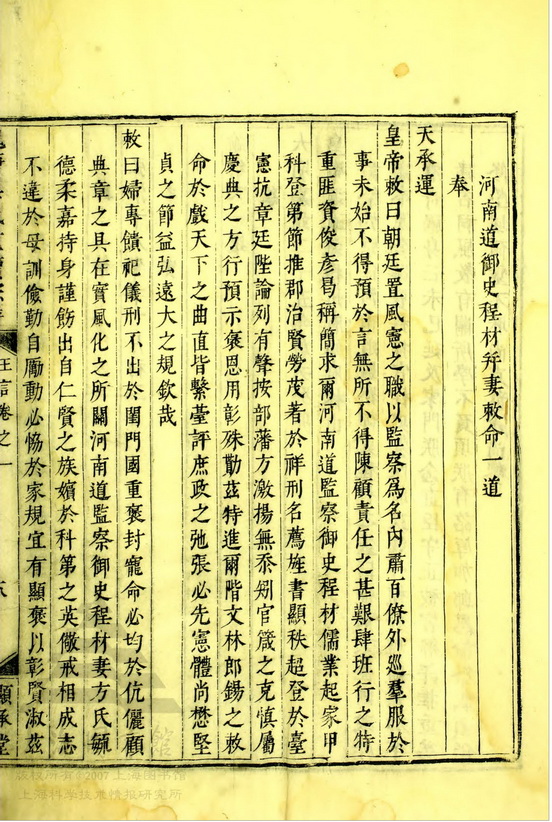 河南道御史程材并妻敕命一道
奉
天承運
皇帝敕曰朝廷置風憲之職以監察為名內肅百僚外巡羣服於
事未始不得預於言無所不得陳顧責任之甚艱肆班行之特
重匪資俊彥曷稱簡求爾河南道監察御史程材儒業起家甲
科登第節推郡治賢勞茂著於祥刑名薦旌書顯秩超登於臺
憲抗章廷陛論列有聲按部藩方激揚無忝矧官箴之克慎屬
慶典之方行預示褒恩用彰殊勤茲特進爾階文林郎錫之敕
命於戲天下之曲直皆繫臺評庶政之弛張必先憲體尚懋堅
貞之節益弘遠大之規欽哉
敕曰婦專饋祀儀刑不出於閨門國重褒封寵命必均於伉儷顧
典章之具在實風化之所關河南道監察御史程材妻方氏毓
德柔嘉持身謹飭出自仁賢之族嬪於科第之英儆戒相成志
不違於母訓儉勤自勵動必恊於家規宜有顯褒以彰賢淑茲
王言卷之一
顯承堂
版权所有©2007上海图书馆
上海科学技术情报研究所